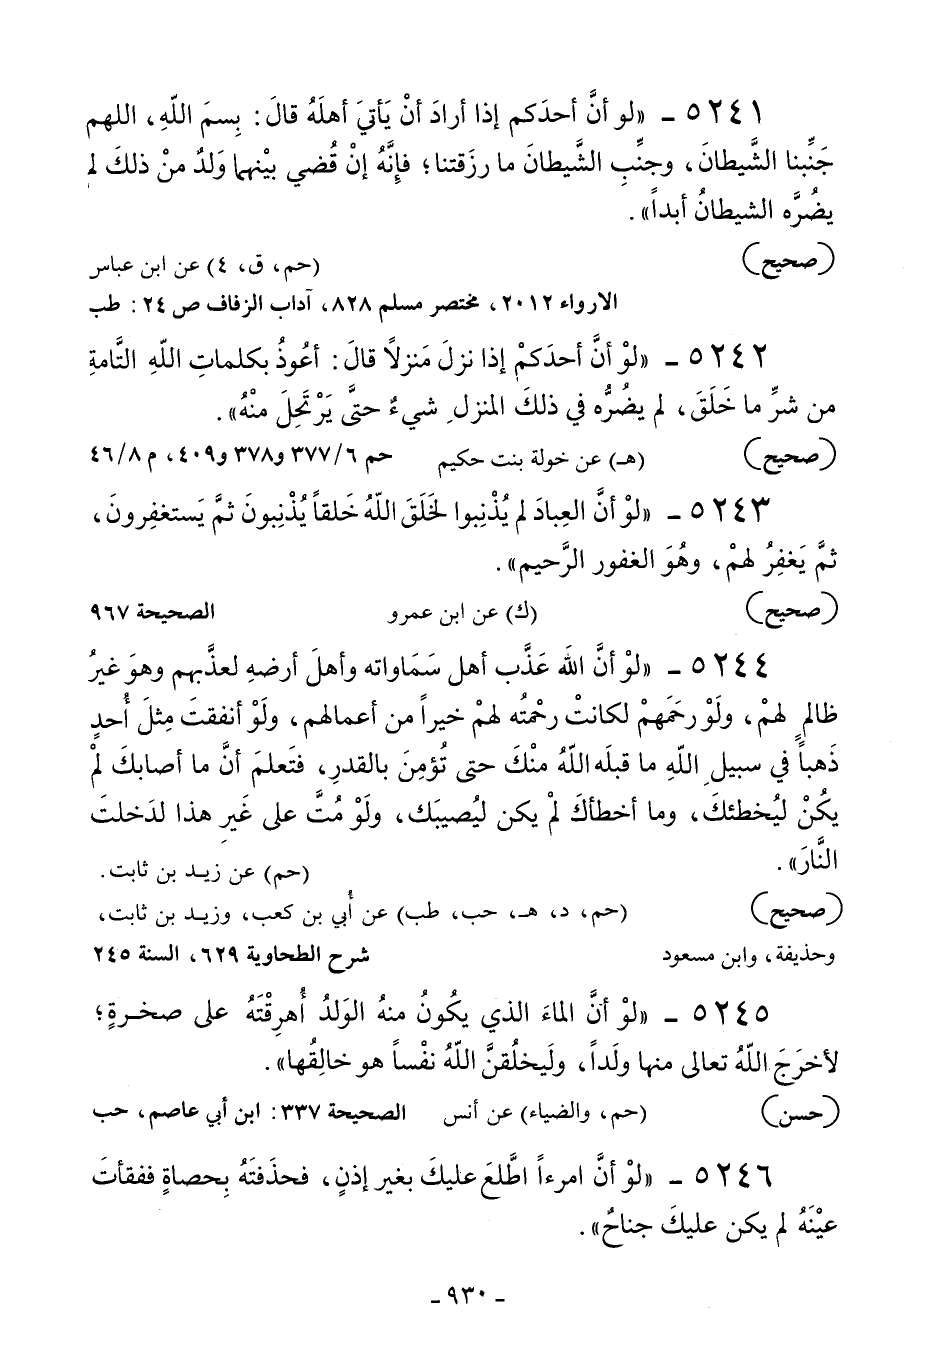 ٥٢٤١ ـ «لو أنَّ أحدَكم إذا أرادَ أنْ يَأتيَ أهلَهُ قالَ: بِسمَ اللّهِ، اللهم
جَنِّبنا الشَّيطانَ، وجنِّبِ الشَّيطانَ ما رزَقتنا؛ فإنَّهُ إنْ قُضي بيْنهما وَلدٌ منْ ذلكَ لم
يضُرَّه الشيطانُ أبداً».
(صحيح) (حم، ق، ٤) عن ابن عباس
الارواء ٢٠١٢، مختصر مسلم ٨٢٨، آداب الزفاف ص ٢٤: طب
٥٢٤٢ ـ «لوْ أنَّ أحدَكمْ إذا نزلَ مَنزلاً قالَ: أعُوذُ بكلماتِ اللّهِ التَّامةِ
من شرِّ ما خَلَقَ، لم يضُرُّه في ذلكَ المنزلِ شيءٌ حتَّى يَرْتَحِلَ منْهُ».
(صحيح) (هـ) عن خولة بنت حكيم حم ٣٧٧/٦ و٣٧٨ و٤٠٩، م ٤٦/٨
٥٢٤٣ ـ «لوْ أنَّ العِبادَ لم يُذْنِبوا لخَلَقَ اللّهُ خَلقاً يُذْنِبونَ ثمَّ يَستغفِرونَ،
ثمَّ يَغفِرُ لهمْ، وهُوَ الغفور الرَّحيم».
(صحيح) (ك) عن ابن عمرو الصحيحة ٩٦٧
٥٢٤٤ ـ «لوْ أنَّ اللّهَ عَذَّب أهل سَمَاواته وأهلَ أرضهِ لعذَّبهم وهوَ غيرُ
ظالمٍ لهمْ، ولَوْ رحَمَهمْ لكانتْ رحْمتُه لهمْ خيراً من أعمالهم، ولَوْ أنفقتَ مِثلَ أُحدٍ
ذَهباً في سبيلِ اللّهِ ما قبلَه اللّهُ منْكَ حتى تُؤمِنَ بالقدرِ، فتَعلمَ أنَّ ما أصابكَ لمْ
يكُنْ ليُخطئكَ، وما أخطأكَ لمْ يكن ليُصيبَك، ولَوْ مُتَّ على غَيرِ هذا لدَخلتَ
النَّارَ». (حم) عن زيد بن ثابت.
(صحيح) (حم، د، هـ، حب، طب) عن أُبي بن كعب، وزيد بن ثابت،
وحذيفة، وابن مسعود شرح الطحاوية ٦٢٩، السنة ٢٤٥
٥٢٤٥ ـ «لوْ أنَّ الماءَ الذي يكُونُ منهُ الوَلدُ أُهرِقْتَهُ على صخرةٍ؛
لأخرَجَ اللّهُ تعالى منها ولَداً، ولَيخلُقنَّ اللّهُ نفْساً هو خالِقُها».
(حسن) (حم، والضياء) عن أنس الصحيحة ٣٣٧: ابن أبي عاصم، حب
٥٢٤٦ ـ «لوْ أنَّ امرءاً اطَّلعَ عليكَ بغير إذنٍ، فحذَفتَهُ بِحصاةٍ ففقأتَ
عيْنَهُ لم يكن عليكَ جناحُ».
ـ ٩٣٠ ـ